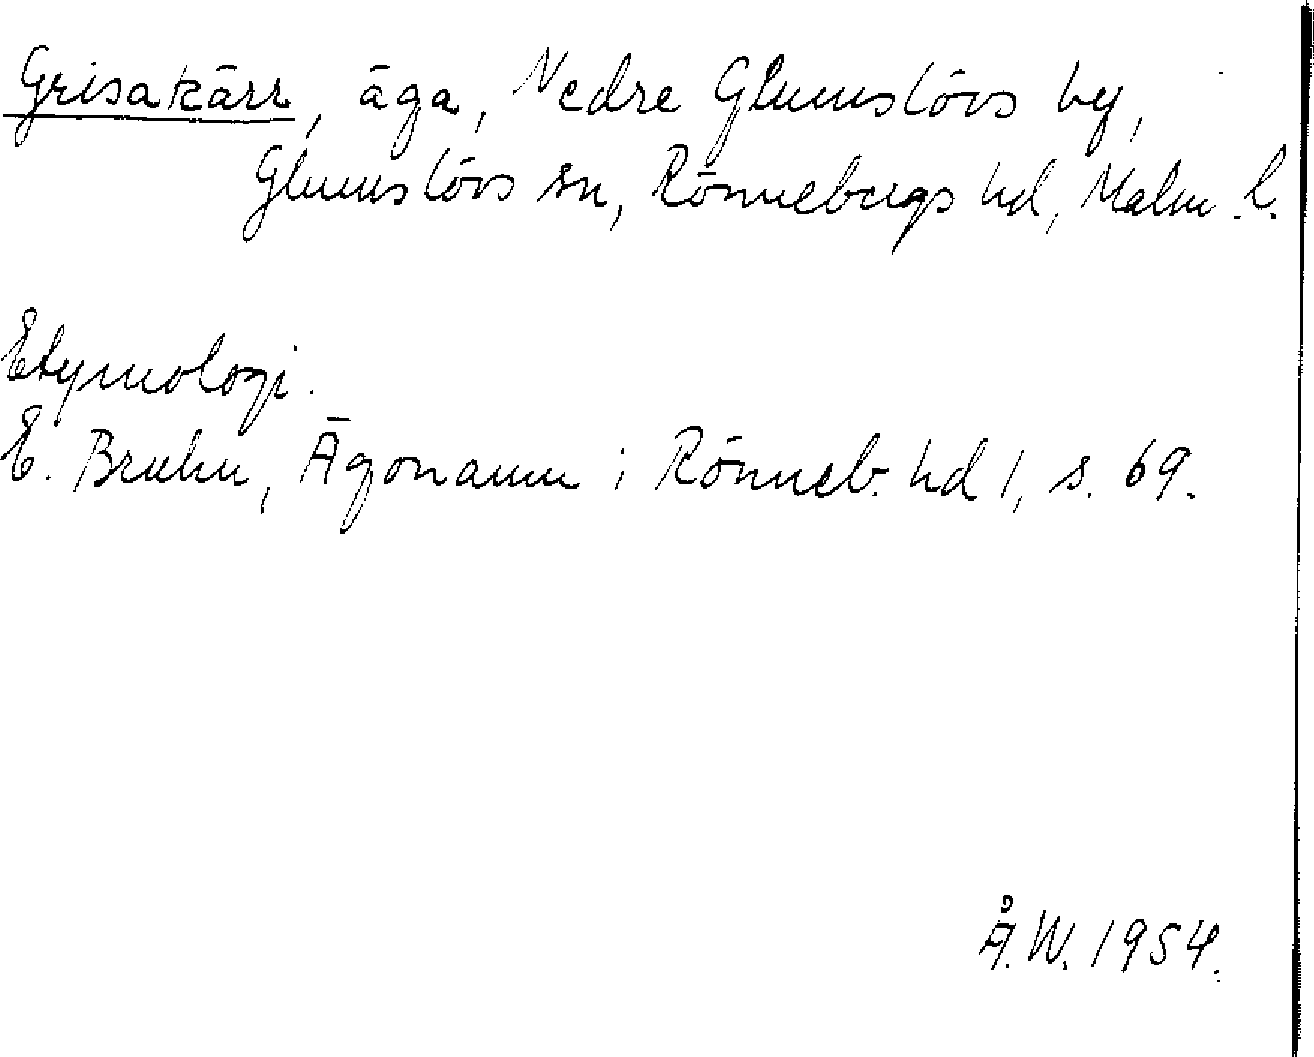 Grisakärr, äga, Nedre Glumslövs by,
Glumslövs sn, Rönnebergs hd, Malm. l.
Etymologi.
E. Bruhn, Ägonamn i Rönneb. hd 1, s. 69.
Å. W. 1954.